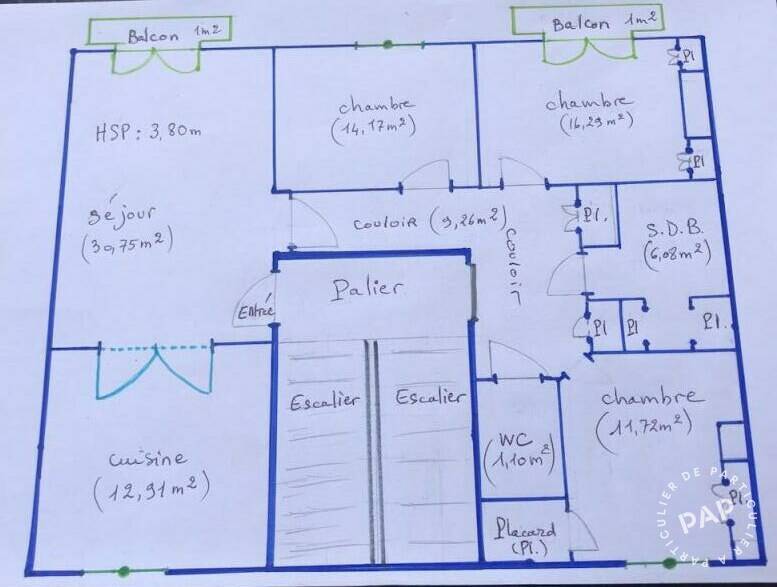 Balcon 1m²
Balcon 1m²
Pl
chambre
(14,17m²)
chambre
(16,29m²)
HSP : 3,80m
Pl
séjour
(30,75m²)
couloir (9,26m²)
couloir
Pl.
S.D.B.
(6,08m²)
Palier
Entrée
Pl
Pl
Pl.
Escalier
Escalier
chambre
(11,72m²)
WC
(1,10m²)
cuisine
(12,91m²)
Pl.
Placard
(Pl.)
DE PARTICULIER À PARTICULIER
PAP